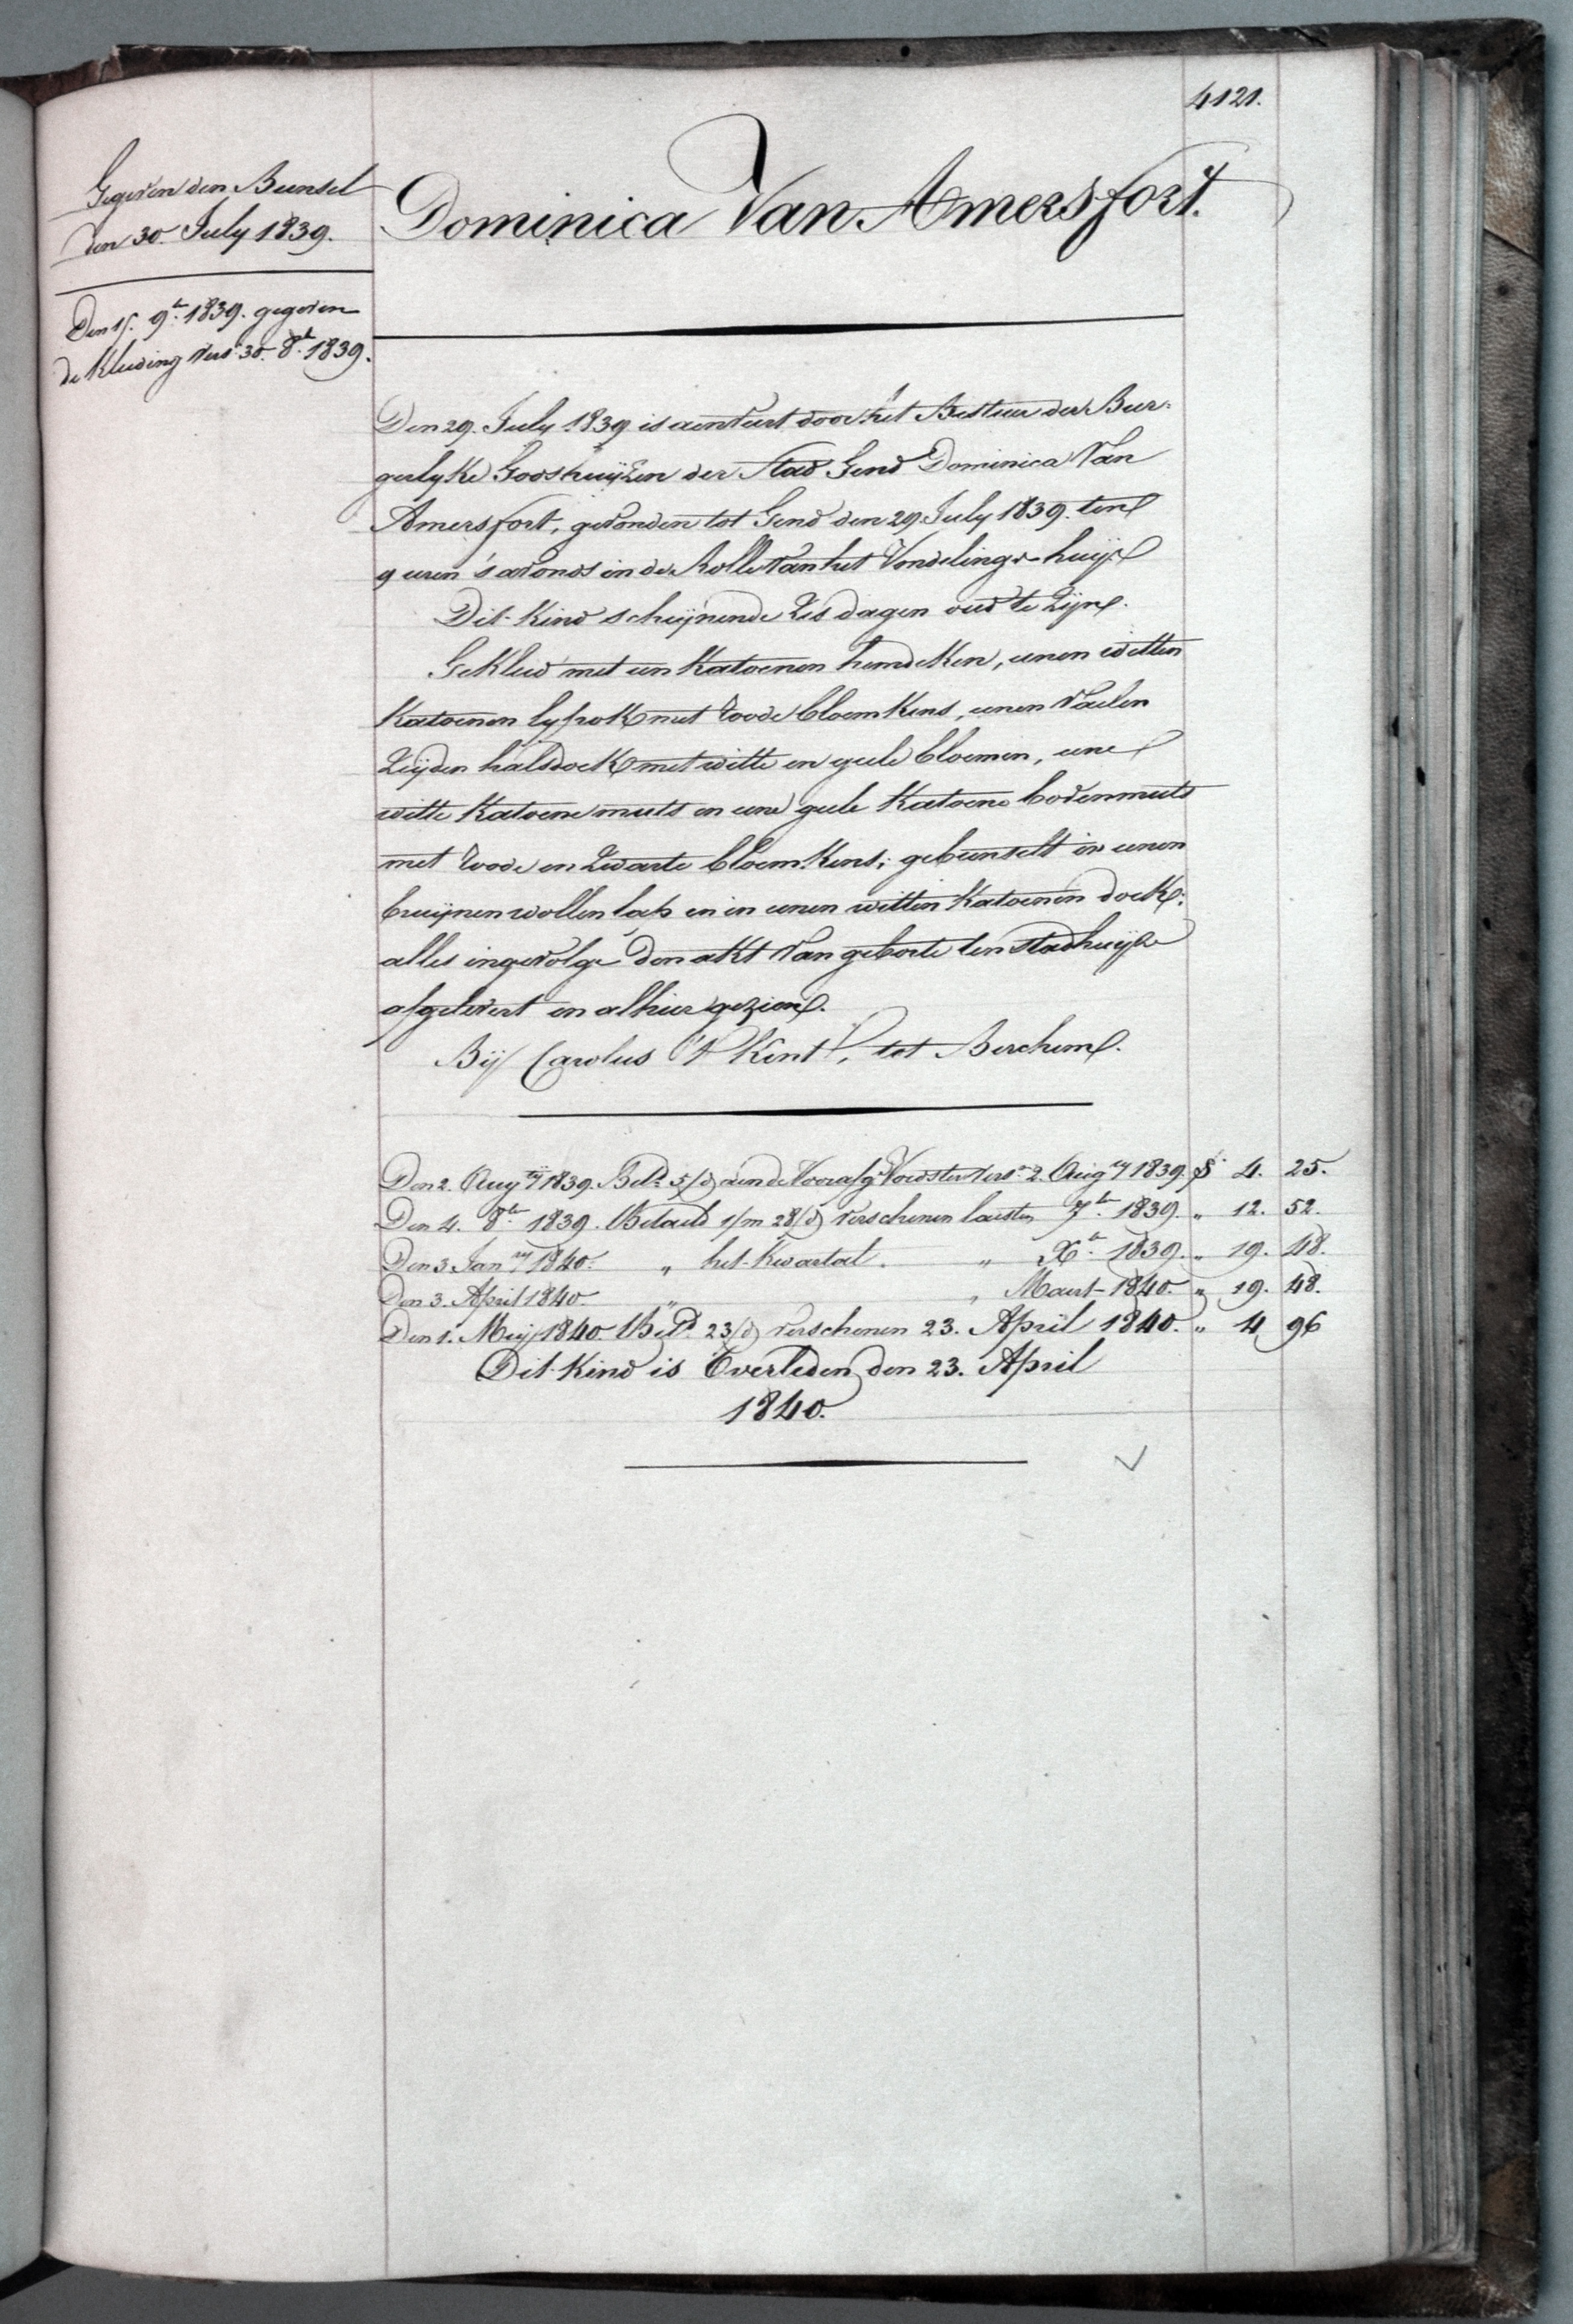 4121.
Gegeven den Bunsel
den 30. July 1839.
Den 15. 9.br 1839. gegeven
de Kleeding vers. 30. 8.br 1839.
Dominica Van Amersfort.
Den 29. July 1839 is aenveert door het Bestuer der Bur-
gerlyke Godshuijzen der Stad Gend Dominica Van
Amersfort, gevonden tot Gend den 29 July 1839. ten
9 uren 's avonds in de Rolle van het Vondelings-huijs
Dit Kind schijnende Zes dagen oud te Zijn.
Gekleed met een Katoenen hemdeken, eenen witten
Katoenen lyfrok met roode bloemkens, eenen vaelen
Zeijden halsdoek met witte en geele bloemen, eene
witte Katoene muts en eene geele Katoene bovenmuts
met roode en Zwarte bloemkens; gebunselt in eenen
bruijnen wollen lap en in eenen witten Katoenen doek;
alles ingevolge den akt van geborte ten stadhuijze
afgelevert en alhier gezien.
Bij Carolus 'T Kint, tot Berchem.
Den 2. Aug.ty 1839. Bet. 5/d aen de Voorafg. Voedster vers. 2. Aug.ty 1839. 4. 25.
Den 4. 8.br 1839. Betaeld 1/m 28/d verschenen laesten 7.br 1839. " 12. 52.
Den 3. Jan.ry 1840. " het Kwartael. " X.br 1839. " 19. 48.
Den 3. April 1840. " " Maert 1840. " 19. 48.
Den 1. Meij 1840 Bet.d 23/d verschenen 23. April 1840. " 4 96
Dit Kind is Overleden den 23. April
1840.